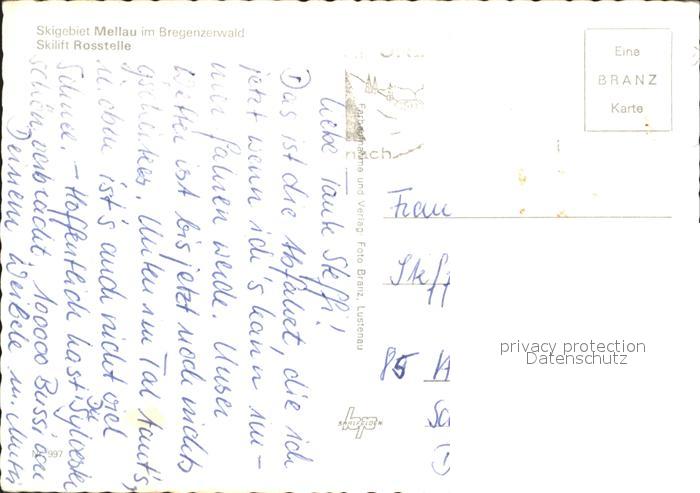 Skigebiet Mellau im Bregenzerwald
Skilift Rosstelle
Liebe Tante Steffi!
Das ist die Abfahrt, die ich
jetzt wenn ich's kann im-
mer fahren werde. Unser
Wetter ist bis jetzt noch nichts
gscheites. Unten im Tal taut's,
u. oben ist's auch nicht viel
Schnee. – Hoffentlich hast Du Sylvester
schön verbracht. 10000 Bussi an
Deinem Weibele u. Mutti
Nr. 997
Farbaufnahme und Verlag: Foto Branz, Lustenau
Eine
BRANZ
Karte
Frau
Steff
85
privacy protection
Datenschutz